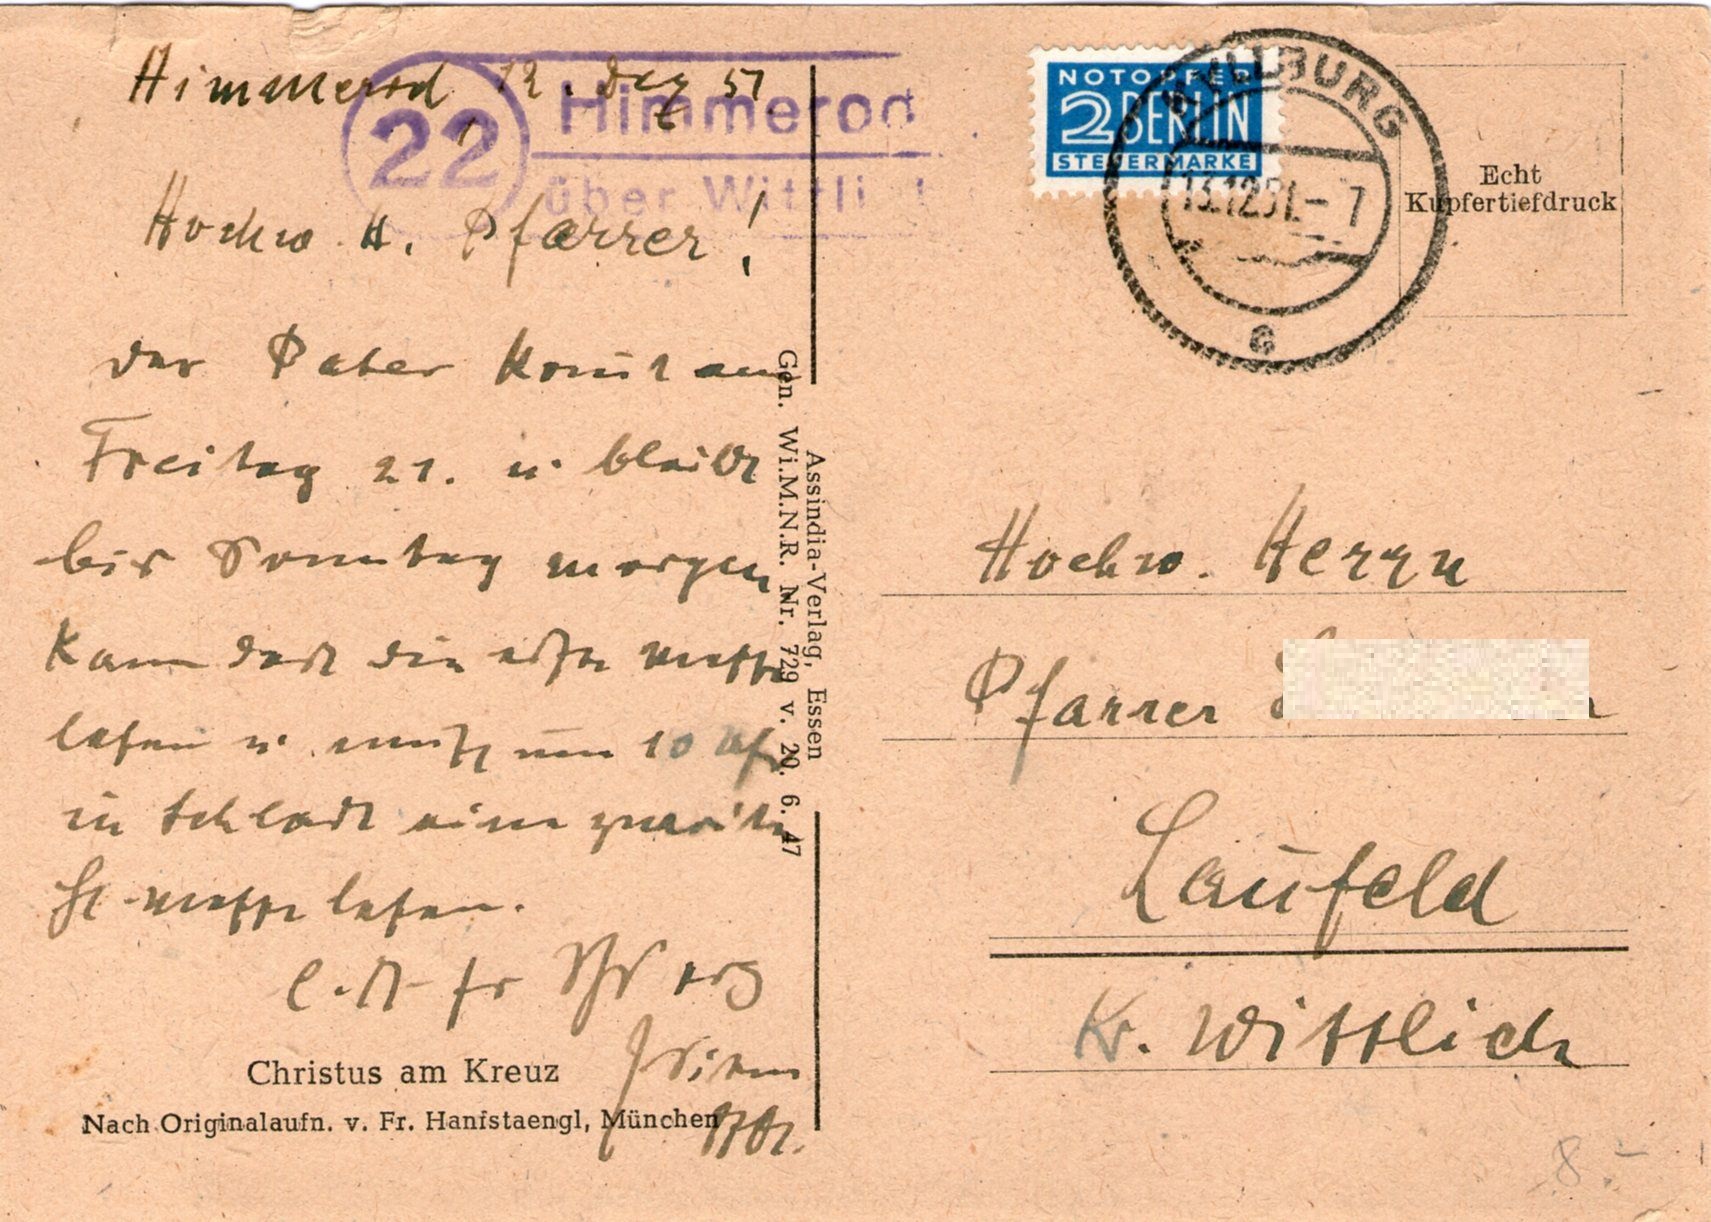 Himmerod 12. Dez 51
22
Himmerod
über Wittli
Hochw. H. Pfarrer!
der Pater kommt am
Freitag 21. u. bleibt
bis Sonntag morgen
Kann dort die erste Messe
lesen u. muß um 10 Uhr
in Schladt eine zweite
hl. Messe lesen.
Christus am Kreuz
Nach Originalaufn. v. Fr. Hanfstaengl, München
Assindia-Verlag, Essen
Gen. Wi.M.N.R. Nr. 729 v. 20. 6. 47
NOTOPFER
2 BERLIN
STEUERMARKE
KYLLBURG
13.12.51.-7
a
Echt
Kupfertiefdruck
Hochw. Herrn
Pfarrer
Laufeld
Kr. Wittlich
8.-